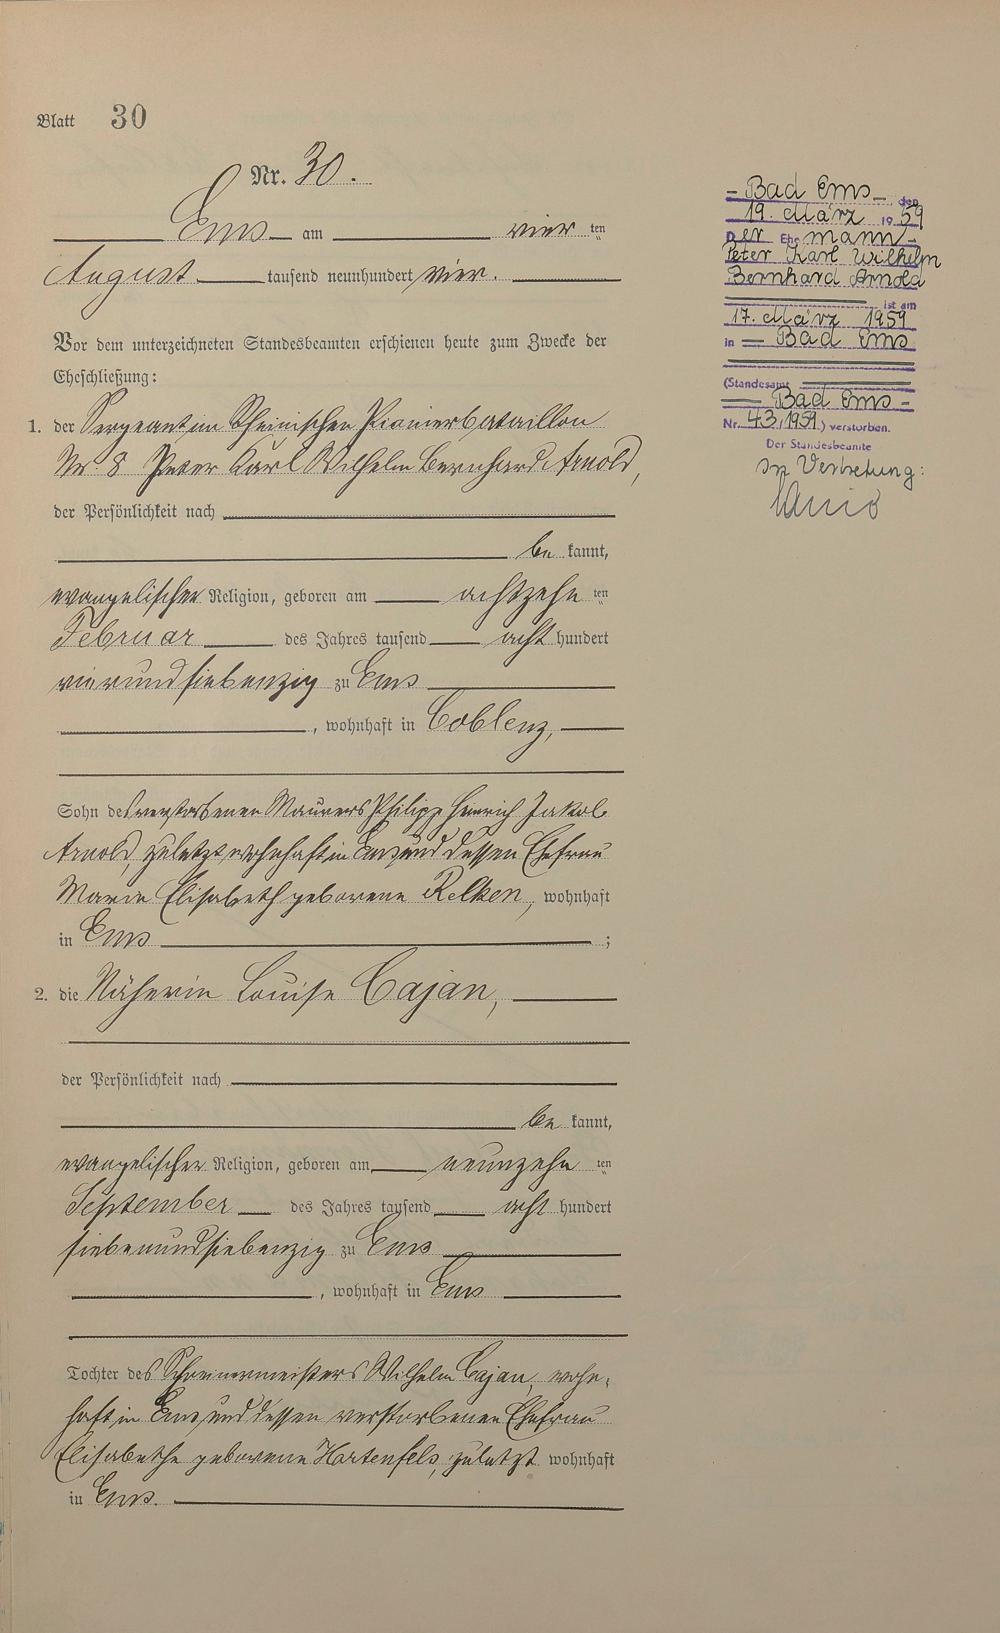 Blatt 30
Nr. 30.
Ems am vierten
August tausend neunhundert vier.
Vor dem unterzeichneten Standesbeamten erschienen heute zum Zwecke der
Eheschließung:
1. der Sergeant im Rheinischen Pionierbataillon
Nr. 8 Peter Karl Wilhelm Bernhard Arnold,
der Persönlichkeit nach
be kannt,
evangelischer Religion, geboren am achtzehnten
Februar des Jahres tausend acht hundert
vierundsiebenzig zu Ems
, wohnhaft in Coblenz,
Sohn des verstorbenen Maurers Philipp Heinrich Jakob
Arnold, zuletzt wohnhaft in Ems und dessen Ehefrau
Marie Elisabeth geborene Relken, wohnhaft
in Ems ;
2. die Näherin Louise Cajan,
der Persönlichkeit nach
be kannt,
evangelischer Religion, geboren am neunzehnten
September des Jahres tausend acht hundert
siebenundsiebenzig zu Ems
, wohnhaft in Ems
Tochter des Schreinermeisters Wilhelm Cajan, wohn-
haft in Ems und dessen verstorbenen Ehefrau
Elisabethe geborene Hartenfels, zuletzt wohnhaft
in Ems.
Bad Ems, den
19. März 1959
Der Ehemann
Peter Karl Wilhelm
Bernhard Arnold
ist am
17. März 1959
in Bad Ems
(Standesamt
Bad Ems
Nr. 43/1959.) verstorben.
Der Standesbeamte
In Vertretung: